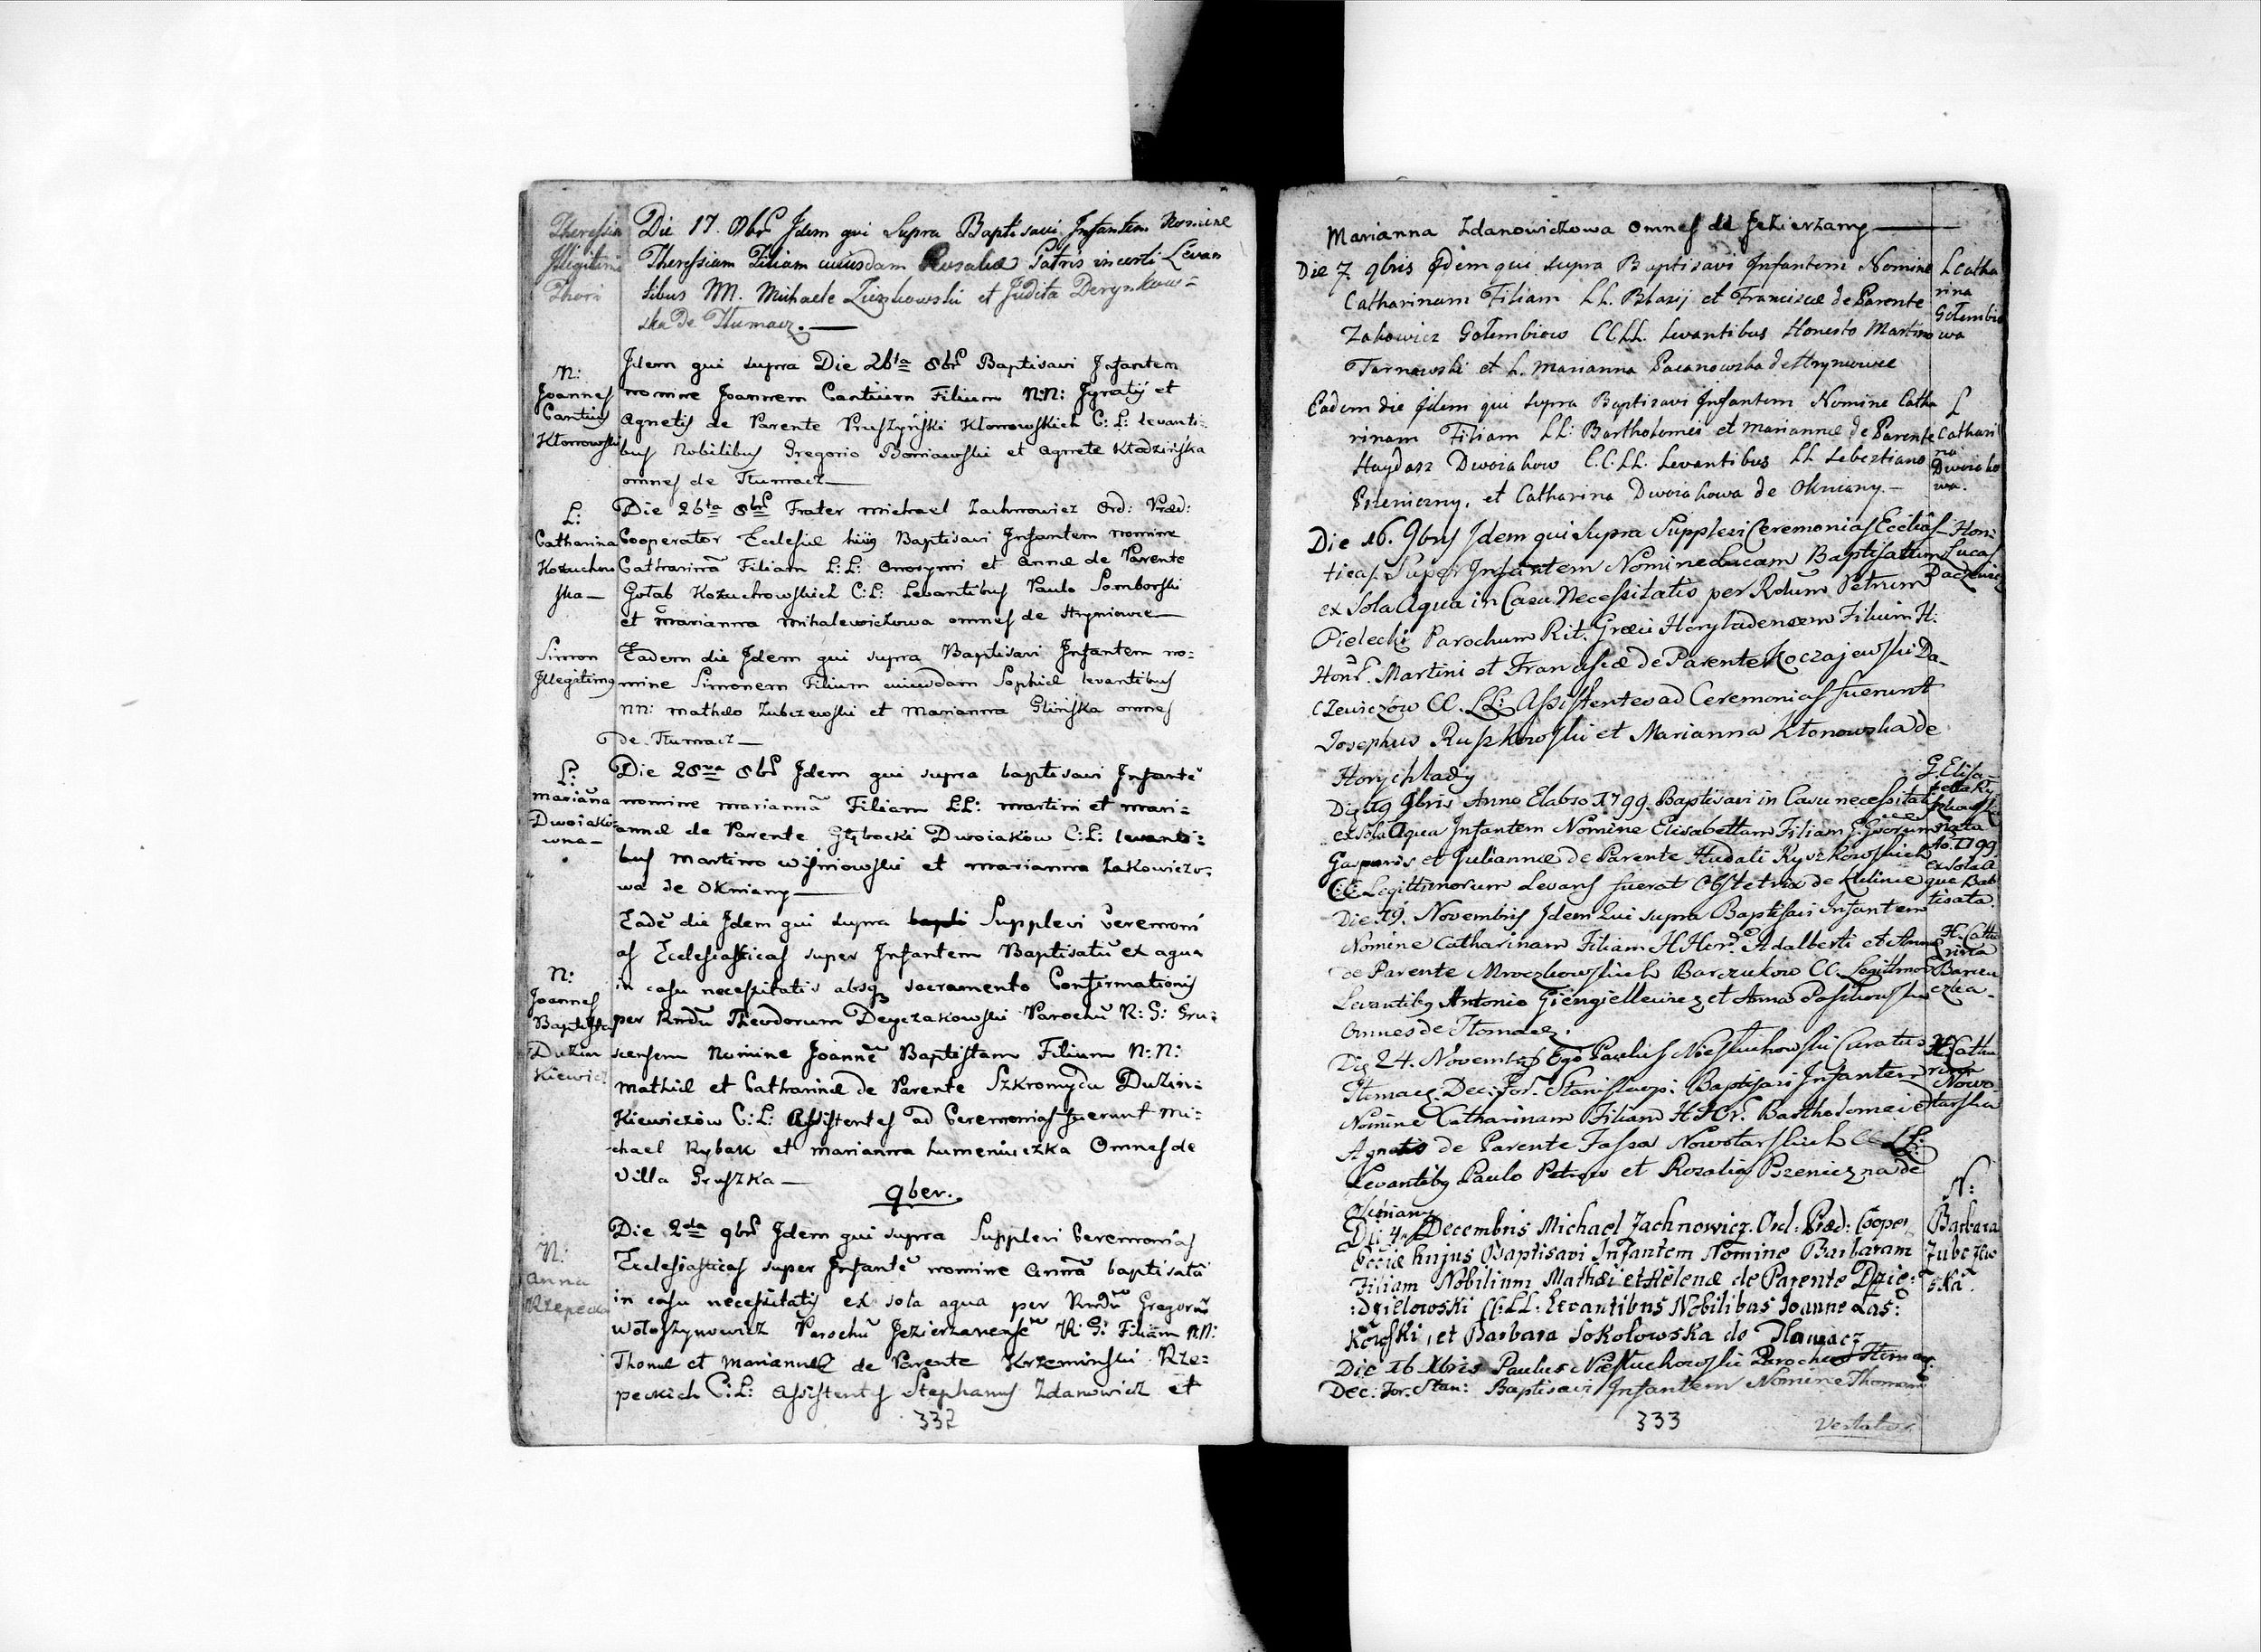 Theressia
Illegitimi
Thori
Die 17. 8br Idem qui Supra Baptisavi Infantem Nomine
Theressiam Filiam cuiusdam Rosaliæ Patris incerti Levan
tibus NN. Michaele Ziezkowski et Judita Derynkow-
ska de Tłumacz.
N:
Joannes
Cantius
Kłonowski
Idem qui supra Die 26ta 8br Baptisavi Infantem
nomine Joannem Cantium Filium N:N: Ignatij et
Agnetis de Parente Pruszyński Kłonowskich C: L: levanti:
bus Nobilibus Gregorio Boniawski et Agnete Kłodzińska
omnes de Tłumacz
L:
Catharina
Kozuchow
ska
Die 26ta 8bris Frater Michael Zachnowicz Ord: Præd:
Cooperator Ecclesiæ huius Baptisavi Infantem nomine
Catharinã Filiam L:L: Onosymi et Annæ de Parente
Gołab Kozuchowskich C:L: Levantibus Paulo Somborski
et Marianna Mihalewiczowa omnes de Hryniowce
Simon
Illegitimus
Eadem die Idem qui supra Baptisavi Infantem no:
mine Simonem Filium cuiusdam Sophiæ levantibus
NN: Mathæo Zubczewski et Marianna Glińska omnes
de Tłumacz
L:
Mariãna
Dwoiako:
wna
Die 28va 8br Idem qui supra baptisavi Infantẽ
nomine Mariannã Filiam L:L: Martini et Mari:
annæ de Parente Głębocki Dwoiaków C:L: levanti:
bus Martino Wiśniowski et Marianna Zakowiczo:
wa de Okniany
N:
Joannes
Baptista
Duzin
kiewicz
Eadẽ die Idem qui supra bapti Supplevi Ceremoni
as Ecclesiasticas super Infantem Baptisatũ ex aqua
in casu necessitatis absq sacramento Confirmationis
per Rndũ Theodorum Deyczakowski Parochũ R: G: Gru:
scensem Nomine Joannẽ Baptistam Filium N:N:
Mathiæ et Catharinæ de Parente Szkromyda Duzin:
kiewiczów C:L: Assistentes ad Ceremonias fuerunt Mi:
chael Rybak et Marianna Lumeniczka Omnes de
Villa Gruszka
9ber.
N:
Anna
Rzepecka
Die 2da 9br Idem qui supra Supplevi Ceremonias
Ecclesiasticas super Infantẽ nomine Annã baptisatã
in casu necessitatis ex sola aqua per Rndũ Gregoriũ
Wołoszynowicz Parochũ Jezierzanensẽ R: G: Filiam NN:
Thomæ et Mariannæ de Parente Krzeminski Rze:
peckich C:L: Assistentes Stephanus Zdanowicz et
332
Marianna Zdanowiczowa omnes de Jezierzany
Die 7. 9bris Idem qui supra Baptisavi Infantem Nomine
Catharinam Filiam LL. Blasij et Franciscæ de Parente
Zakowicz Gołembiow CCLL. Levantibus Honesto Martino
Tarnawski et L. Marianna Pacanowska de Hryniowce
L Catha
rina
Gołembio
wa
Eadem die Idem qui supra Baptisavi Infantem Nomine Catha
rinam Filiam LL: Bartholomei et Mariannæ de Parente
Haydasz Dwoiakow C.C.LL. Levantibus LL Sebestiano
Pszeniczny, et Catharina Dwoiakowa de Okniany.
L
Cathari
na
Dwoiako
wa.
Die 16. 9bris Idem qui supra Supplevi Ceremonias Ecclias
ticas Super Infantem Nomine Lucam Baptisatum
ex Sola Aqua in Casu Necessitatis per Rdum Petrum
Pielecki Parochum Rit. Græci Horyhladensem Filium H:
Honr. Martini et Franciscæ de Parente Koczajewski Da-
czewiczow CC. LL: Assistentes ad Ceremonias fuerunt
Josephus Ruszkowski et Marianna Kłonowska de
Horychlady
Hon:
Lucas
Daczewicz
Die 19 9bris Anno Elabso 1799. Baptisavi in Casu necessitatis
ex Sola Aqua Infantem Nomine Elisabettam Filiam G. Gnorum
Gasparis et Julianna de Parente Hudali Ryszkowskich
CC: Legittimorum Levans fuerat Obstetrix de Kulince
G. Elisa-
betta Ry
szkowska
nata
Ao. 1799
ex Sola a
qua Bab
tisata.
Die 19. Novembris Idem Qui supra Baptisavi Infantem
Nomine Catharinam Filiam HHor. Adalberti et Annæ
de Parente Mroczkowskich Barczukow CC. Legittimor
Levantibus Antonio Giengiellewicz et Anna Paszkowska
Omnes de Tłomacz.
H. Catha
rina
Barczu
czka.
Die 24. Novembris Ego Paulus Niestuchowski Curatus
Tłomacz. Dec: For. Stanislaop: Baptisavi Infantem
Nomine Catharinam Filiam HHor. Bartholomæi et
Agnetis de Parente Fassa Nowotarskich CC LL:
Levantibus Paulo Petrow et Rosalia Pszeniczna de
Okniany
H. Catha
rina
Nowo-
tarska
Die 4. Decembris Michael Zachnowicz. Ord. Præd: Cooper
Ecciæ hujus Baptisavi Infantem Nomine Barbaram
Filiam Nobilium Mathæi et Helenæ de Parente Dzie:
:dzielowski CC:LL: Levantibus Nobilibus Joanne Las:
kowski, et Barbara Sokołowska de Tłumacz
N:
Barbara
Zubczew
ska.
Die 16 Xbris Paulus Niestuchowski Parochus Tłomac.
Dec: For. Stan: Baptisavi Infantem Nomine Thomam
333
Vertatur